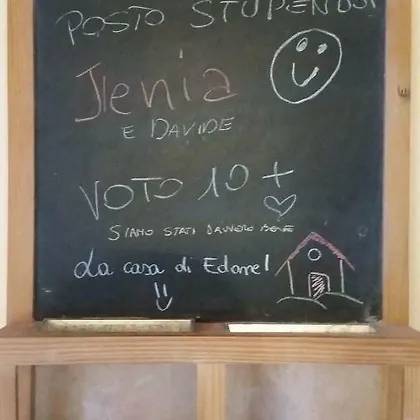 POSTO STUPENDO!
Ilenia
E DAVIDE
VOTO 10+
SIAMO STATI DAVVERO BENE
La casa di Edone!